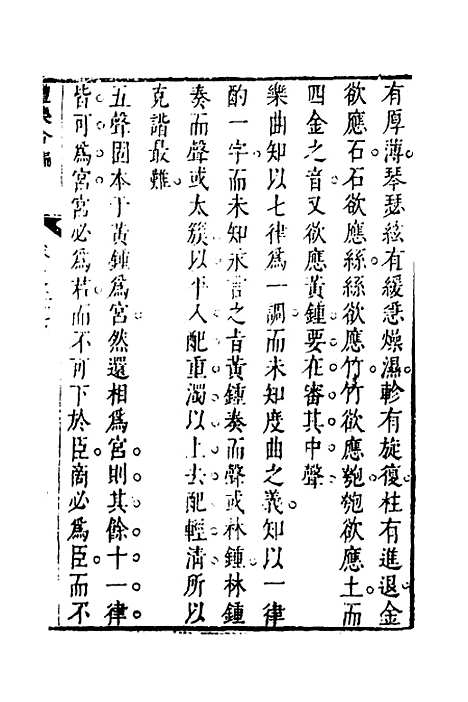 有厚薄琴瑟絃有緩急燥濕軫有旋復柱有進退金
欲應石石欲應絲絲欲應竹竹欲應匏匏欲應土而
四金之音又欲應黃鍾要在審其中聲
樂曲知以七律爲一調而未知度曲之義知以一律
酌一字而未知永言之旨黃鍾奏而聲或林鍾林鍾
奏而聲或太簇以平入配重濁以上去配輕清所以
克諧最難
五聲固本于黃鍾爲宮然還相爲宮則其餘十一律
皆可爲宮宮必爲君而不可下於臣商必爲臣而不